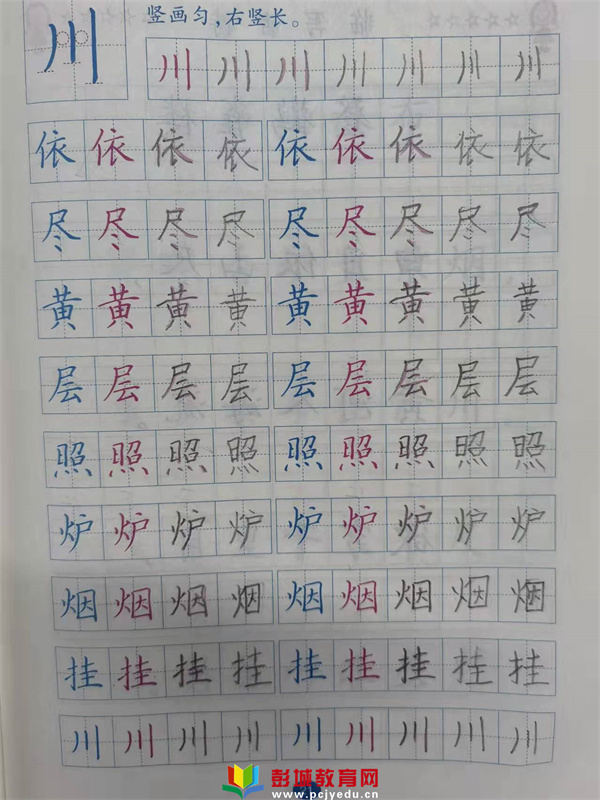 竖画匀,右竖长。
川 川 川 川 川 川 川 川
依 依 依 依 依 依 依 依 依
尽 尽 尽 尽 尽 尽 尽 尽 尽
黄 黄 黄 黄 黄 黄 黄 黄 黄
层 层 层 层 层 层 层 层 层
照 照 照 照 照 照 照 照 照
炉 炉 炉 炉 炉 炉 炉 炉 炉
烟 烟 烟 烟 烟 烟 烟 烟 烟
挂 挂 挂 挂 挂 挂 挂 挂 挂
川 川 川 川 川 川 川 川 川
彭城教育网
www.pcjyedu.cn